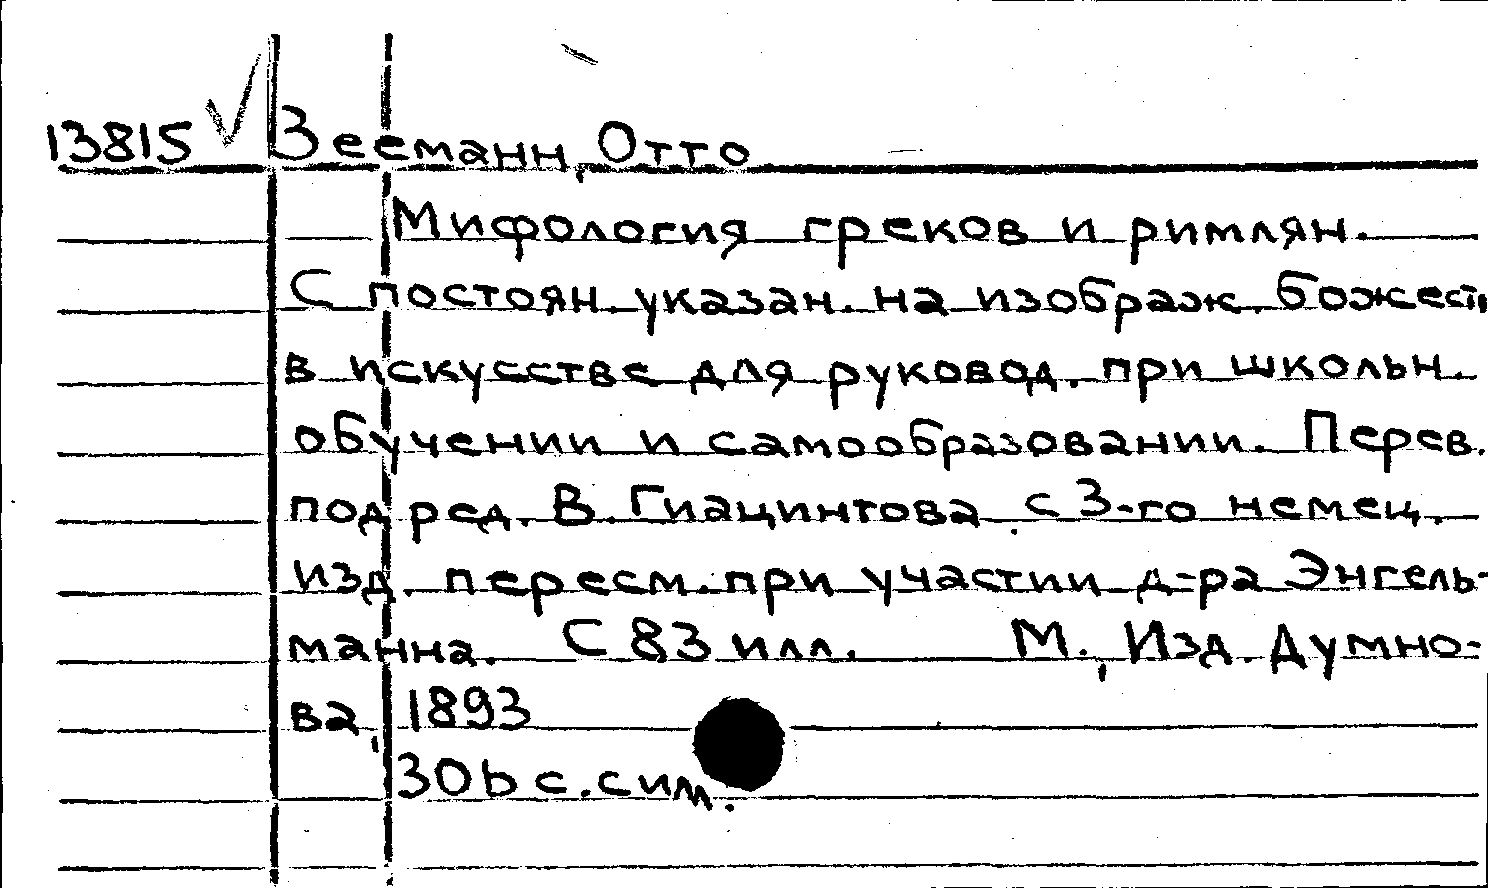 13815 Зееманн, Отто
Мифология греков и римлян.
С постоян. указан. на изображ. божеств
в искусстве для руковод. при школьн.
обучении и самообразовании. Перев.
под ред. В. Гиацинтова с 3-го немец.
изд. пересм. при участии д-ра Энгель-
манна. С 83 илл. М., Изд. Думно-
ва, 1893
306 с. с илл.